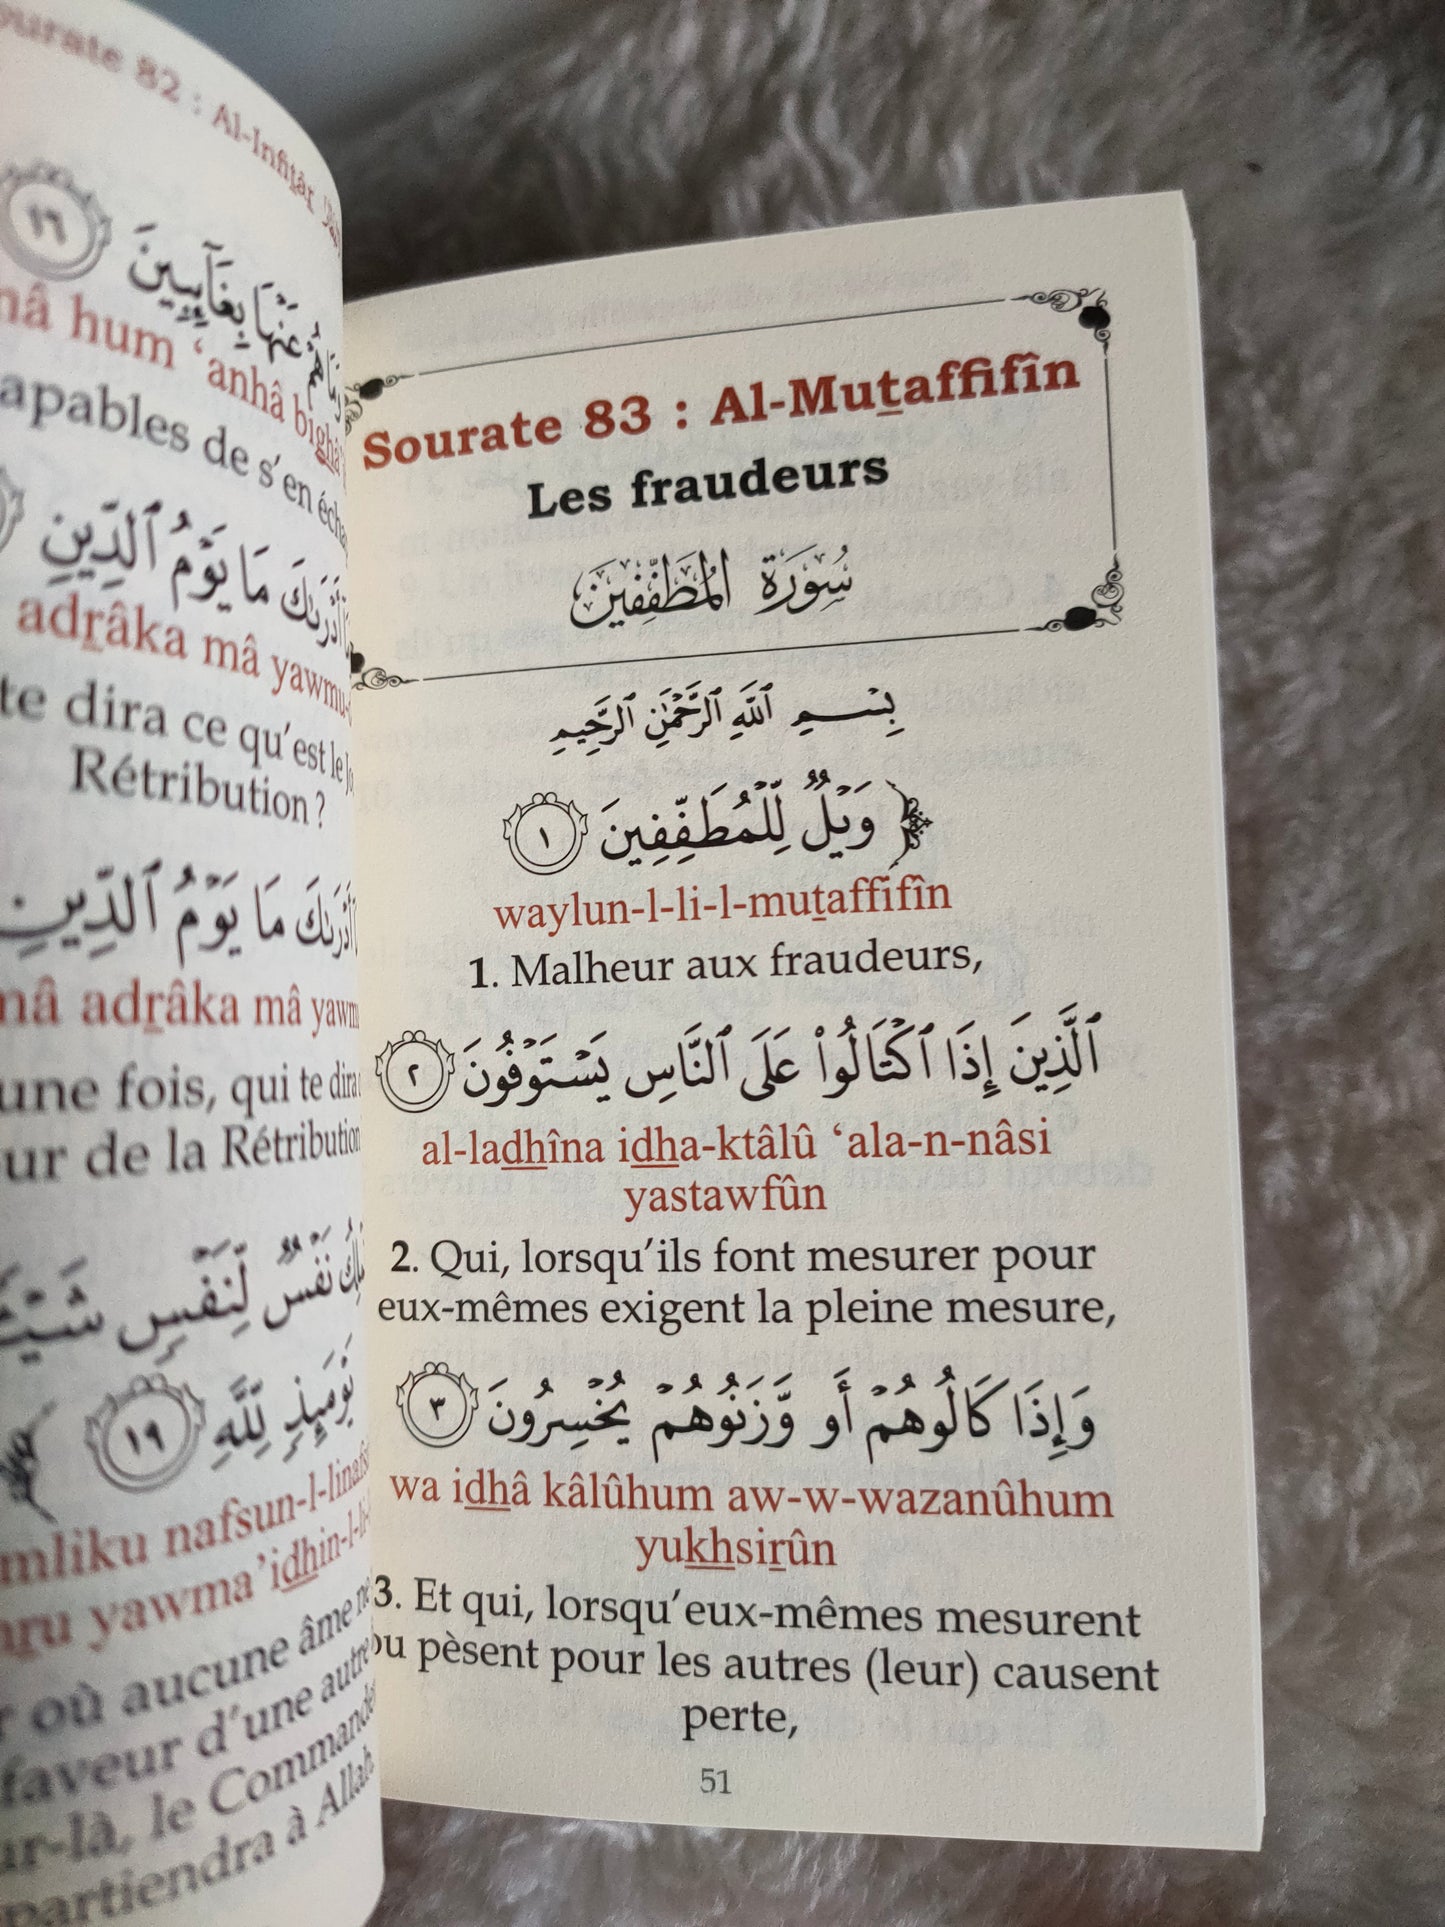 Sourate 82 : Al-Infiṯâṟ
عَنْهَا بِغَآئِبِينَ ١٦
hum ‘anhâ
de s’en
مَا يَوْمُ ٱلدِّينِ
adṟâka mâ yawmu-
te dira ce qu’est le
Rétribution ?
مَا يَوْمُ ٱلدِّينِ
adṟâka mâ
une fois, qui te dira
de la Rétribution
نَفْسٌ لِّنَفْسٍ
يَوْمَئِذٍ لِّلَّهِ ١٩
nafsun-l-linafs
yawma’idhin-l-li-
où aucune âme
faveur d’une autre
le Commande
à Allah
Sourate 83 : Al-Muṯaffifîn
Les fraudeurs
سُورَةُ المُطَفِّفِينَ
بِسْمِ ٱللَّهِ ٱلرَّحْمَٰنِ ٱلرَّحِيمِ
وَيْلٌ لِّلْمُطَفِّفِينَ ١
waylun-l-li-l-muṯaffifîn
1. Malheur aux fraudeurs,
ٱلَّذِينَ إِذَا ٱكْتَالُوا۟ عَلَى ٱلنَّاسِ يَسْتَوْفُونَ ٢
al-laḏẖîna iḏẖa-ktâlû ‘ala-n-nâsi
yastawfûn
2. Qui, lorsqu’ils font mesurer pour
eux-mêmes exigent la pleine mesure,
وَإِذَا كَالُوهُمْ أَو وَّزَنُوهُمْ يُخْسِرُونَ ٣
wa iḏẖâ kâlûhum aw-w-wazanûhum
yuḵẖsiṟûn
3. Et qui, lorsqu’eux-mêmes mesurent
ou pèsent pour les autres (leur) causent
perte,
51